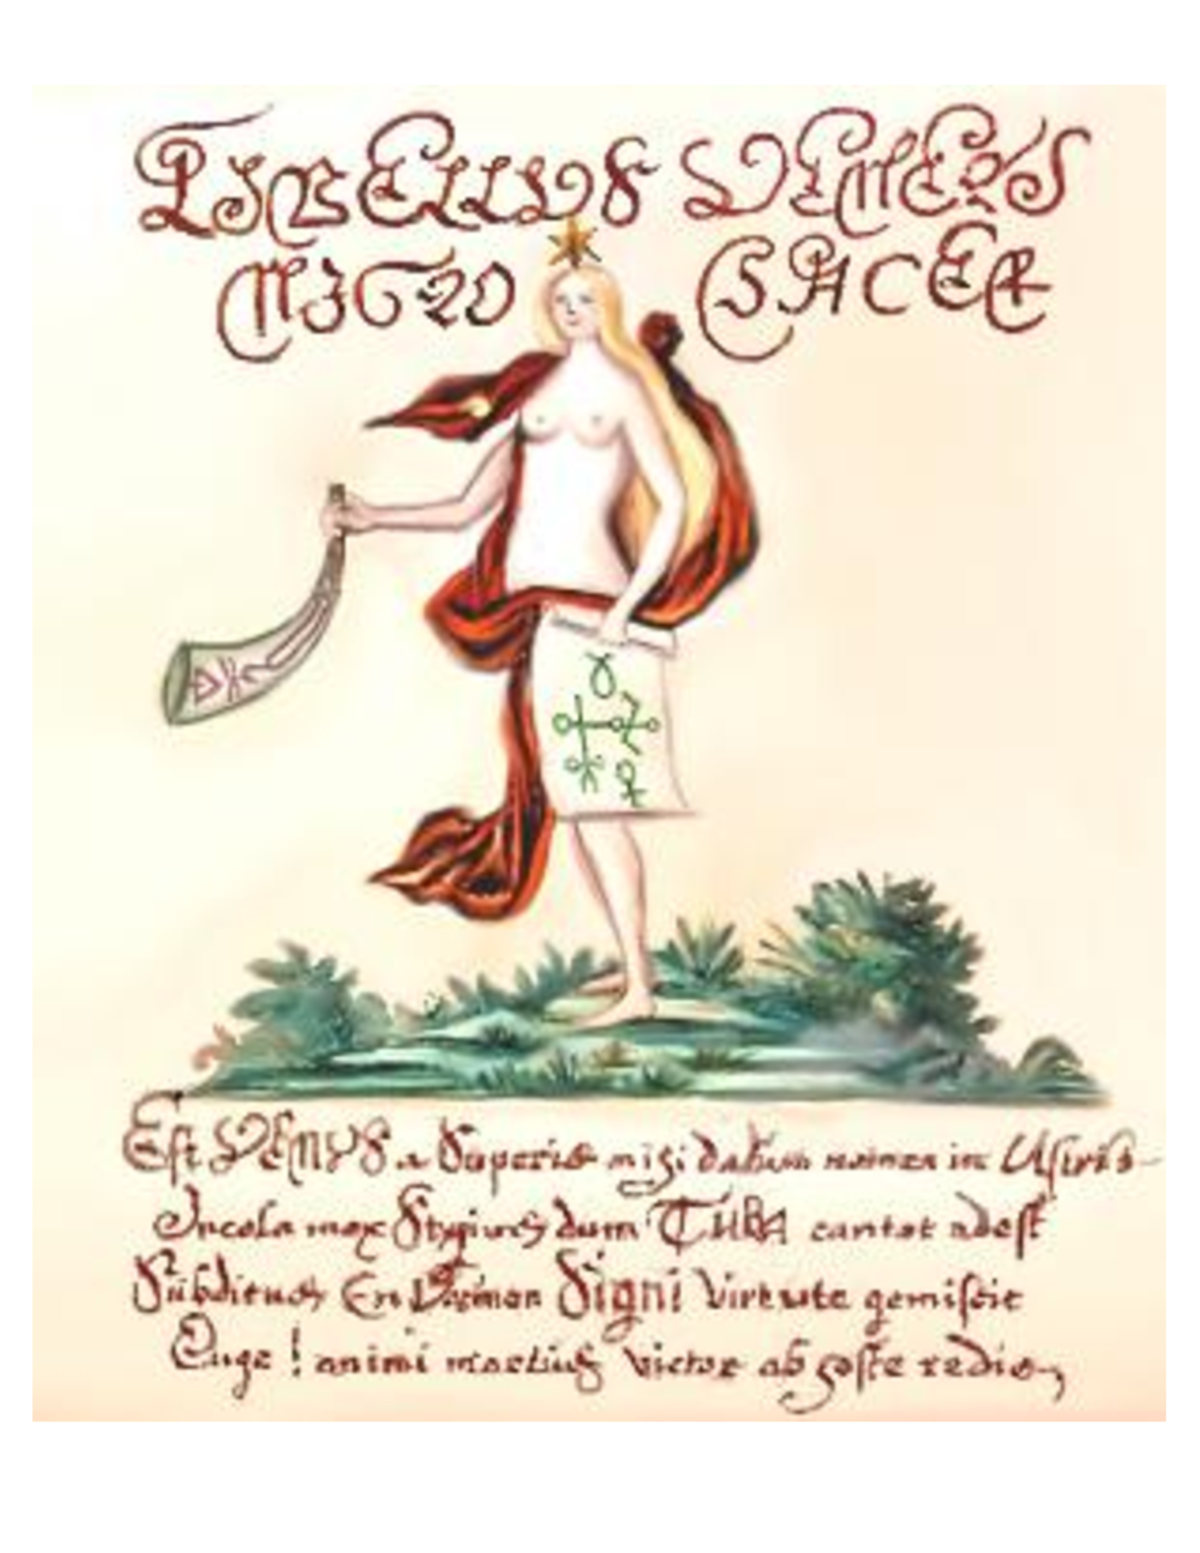 LIBELLVS VENERI
NIGRO SACER
Est VENVS a Superis mihi datum nomen in Usiris
Incola mox Stygius dum TUBA cantat adest
Subditus En Daemon Signi virtute gemiscit
Euge! animi mactus victor ab hoste redis